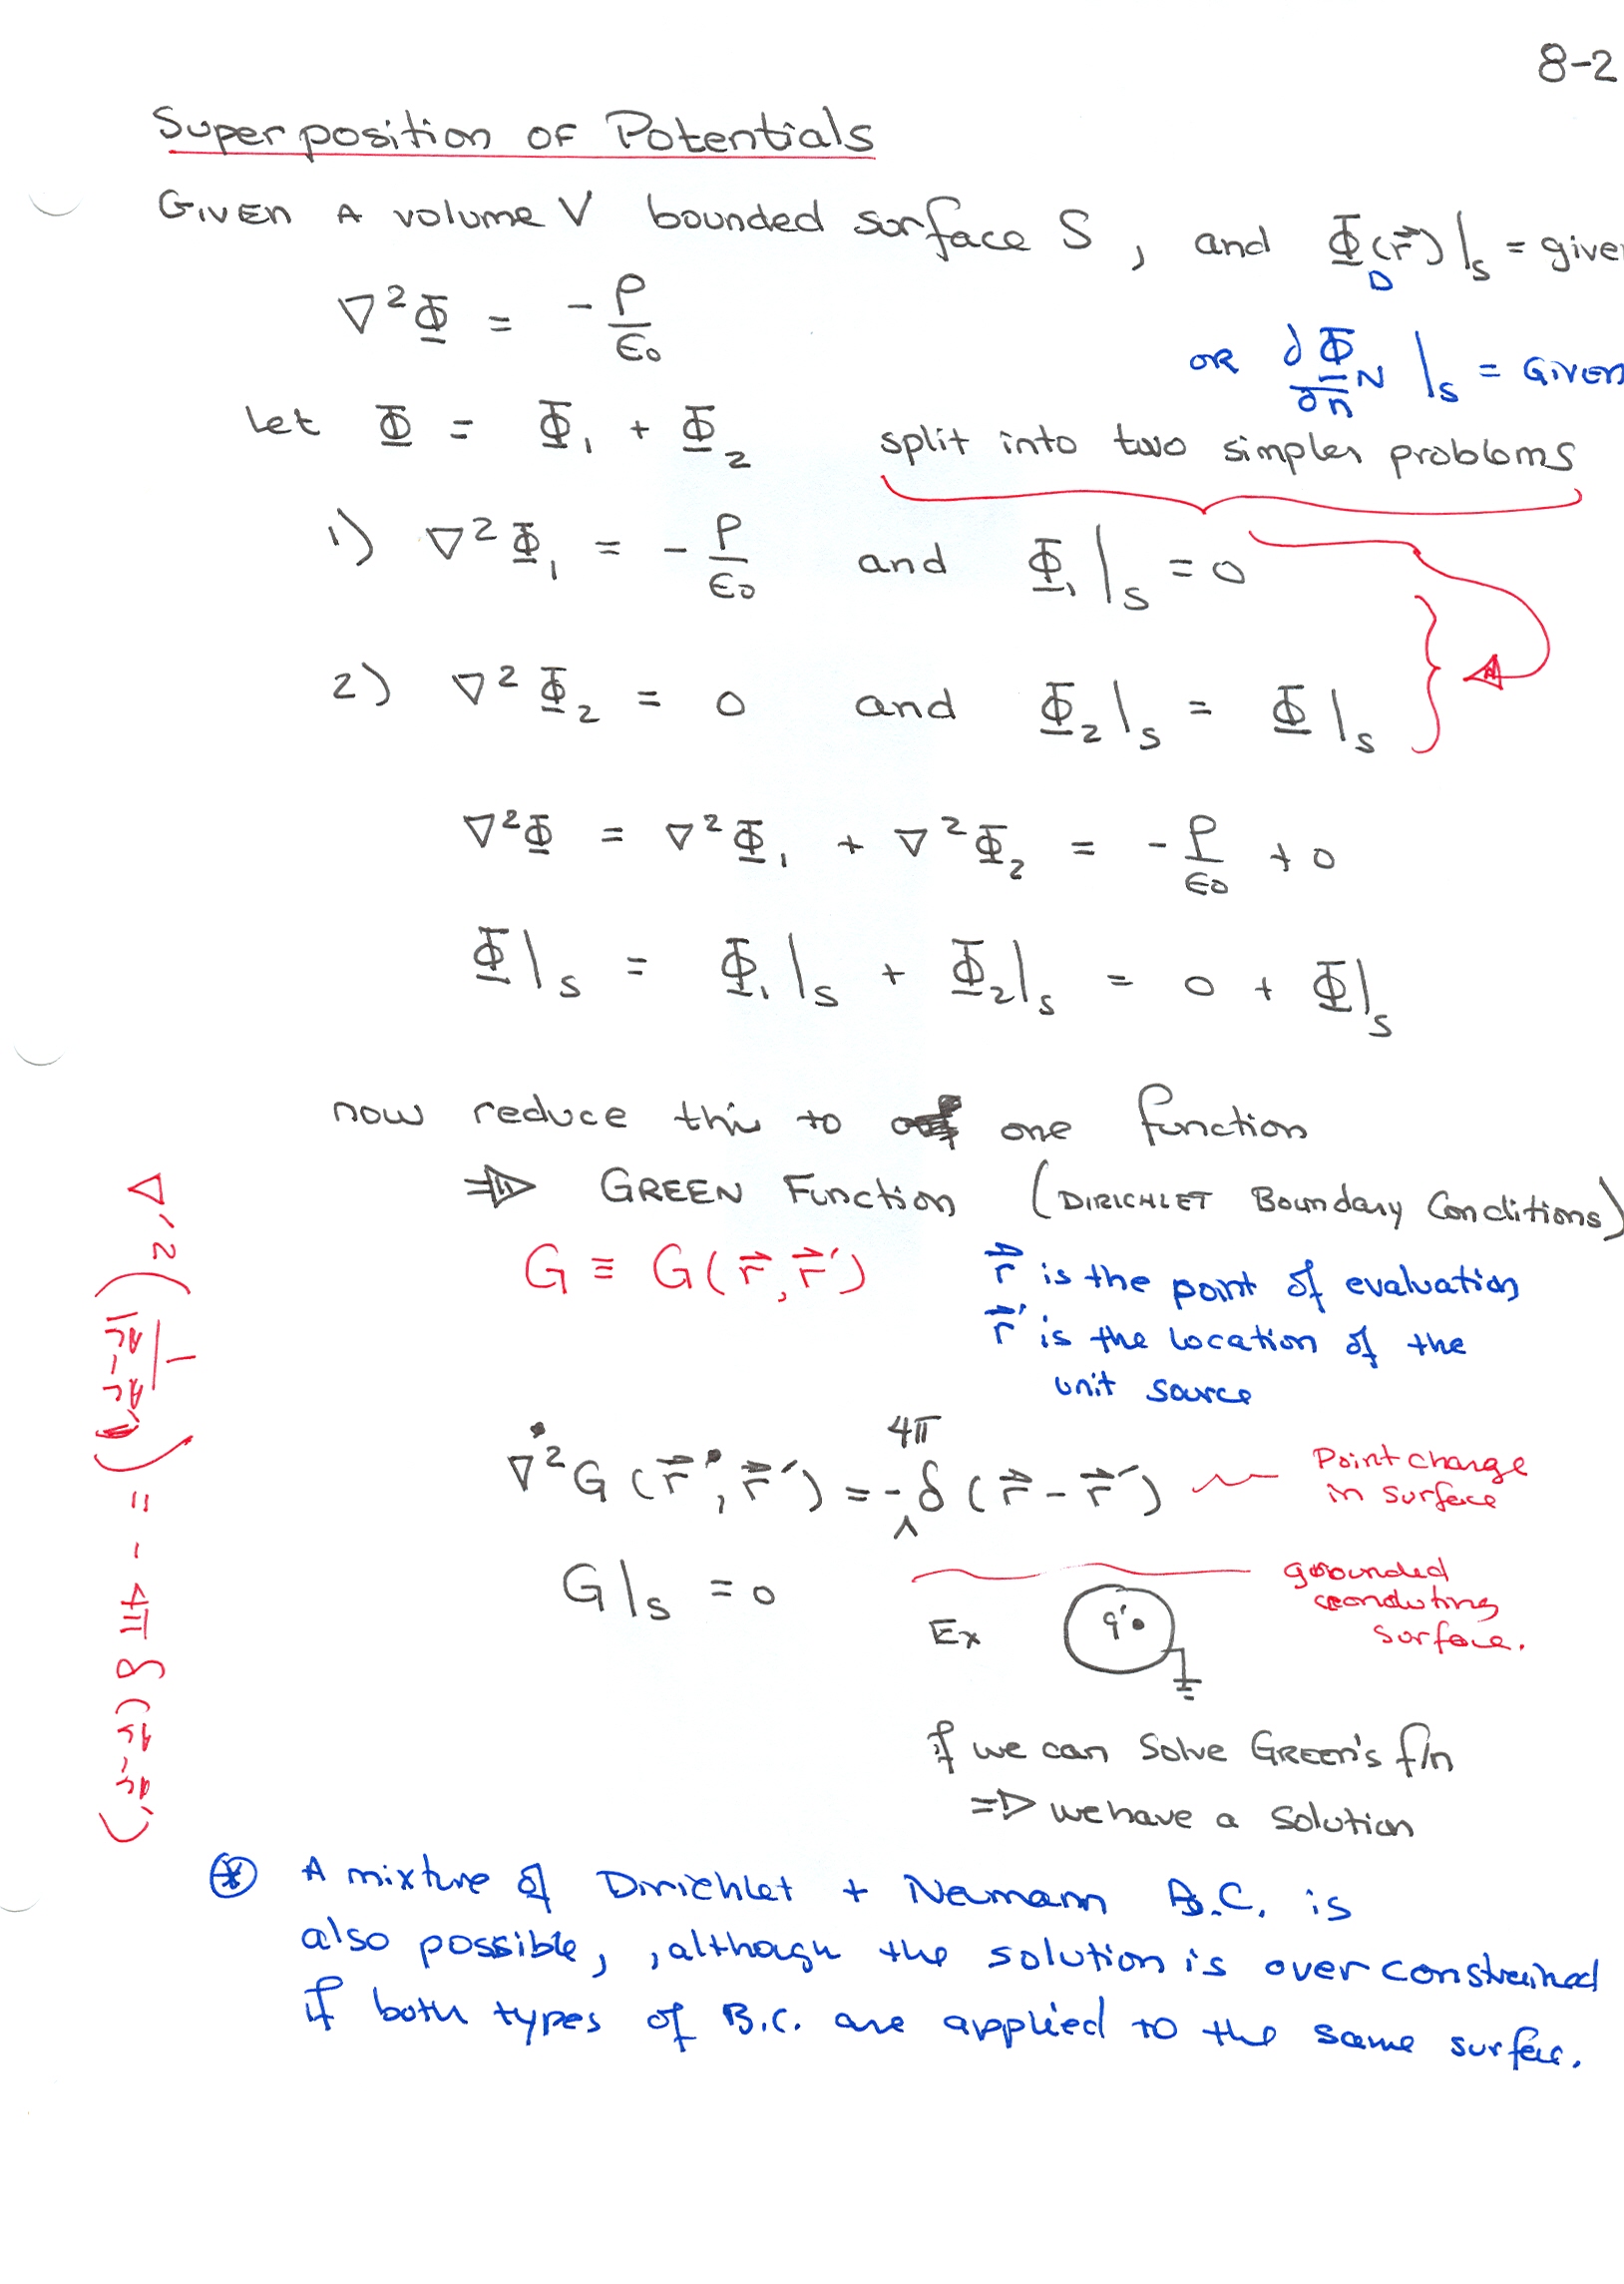 8-2
Superposition of Potentials
Given A volume V bounded surface S, and Φ_D(r⃗)|_S = give
∇²Φ = -ρ/ε₀
OR ∂Φ_N/∂n |_S = Given
Let Φ = Φ₁ + Φ₂ split into two simpler problems
1) ∇²Φ₁ = -ρ/ε₀ and Φ₁|_S = 0
2) ∇²Φ₂ = 0 and Φ₂|_S = Φ|_S
∇²Φ = ∇²Φ₁ + ∇²Φ₂ = -ρ/ε₀ + 0
Φ|_S = Φ₁|_S + Φ₂|_S = 0 + Φ|_S
now reduce this to one function
⇒ GREEN Function (DIRICHLET Boundary Conditions)
G ≡ G(r⃗, r⃗′)
r⃗ is the point of evaluation
r⃗′ is the location of the
unit source
∇²G(r⃗, r⃗′) = -4πδ(r⃗ - r⃗′)
Point charge
in surface
G|_S = 0
grounded
conduting
surface.
Ex q′
if we can Solve GREEN's f/n
⇒ we have a Solution
∇′²(1/|r⃗ - r⃗′|) = -4πδ(r⃗ - r⃗′)
⊛ A mixture of Dirichlet + Nemann B.C. is
also possible, , although the solution is over constrained
if both types of B.C. are applied to the same surface.